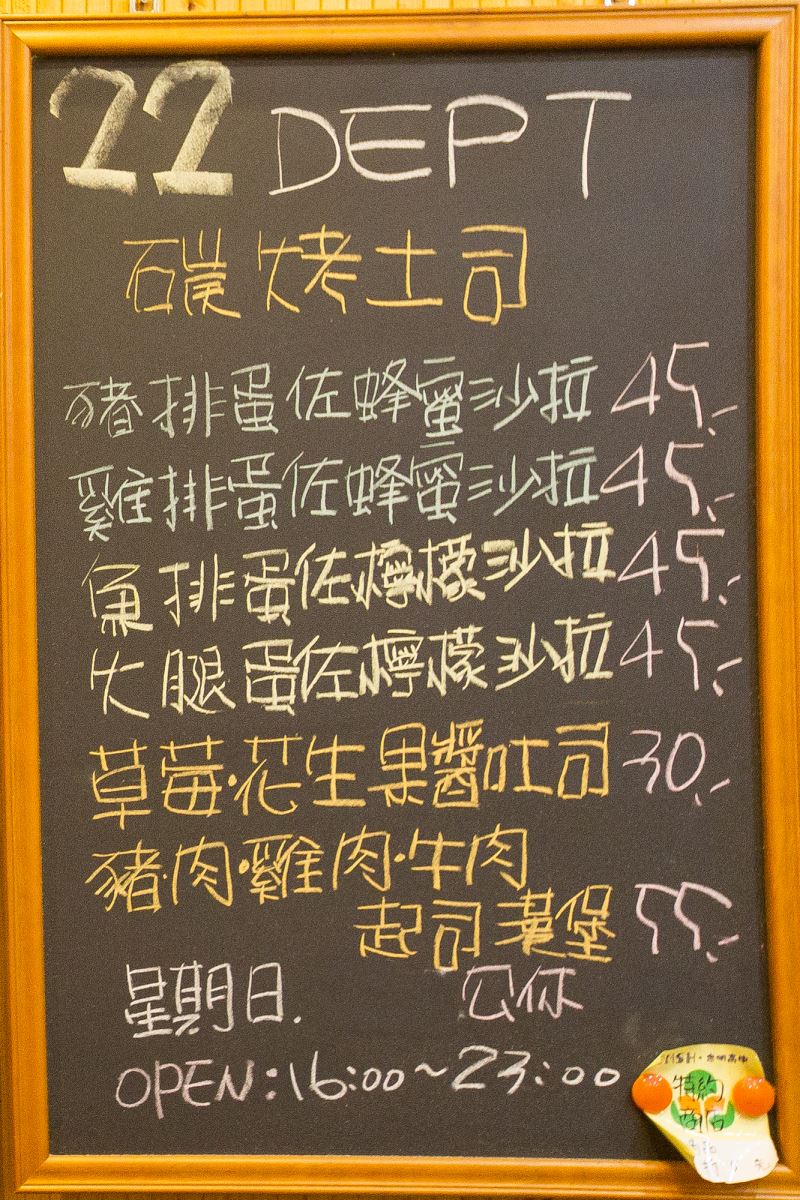 22 DEPT
碳烤土司
豬排蛋佐蜂蜜沙拉 45.-
雞排蛋佐蜂蜜沙拉 45.-
魚排蛋佐檸檬沙拉 45.-
火腿蛋佐檸檬沙拉 45.-
草莓·花生果醬吐司 30.-
豬肉·雞肉·牛肉
起司漢堡 55.-
星期日. 公休
OPEN:16:00~23:00
特約
商店